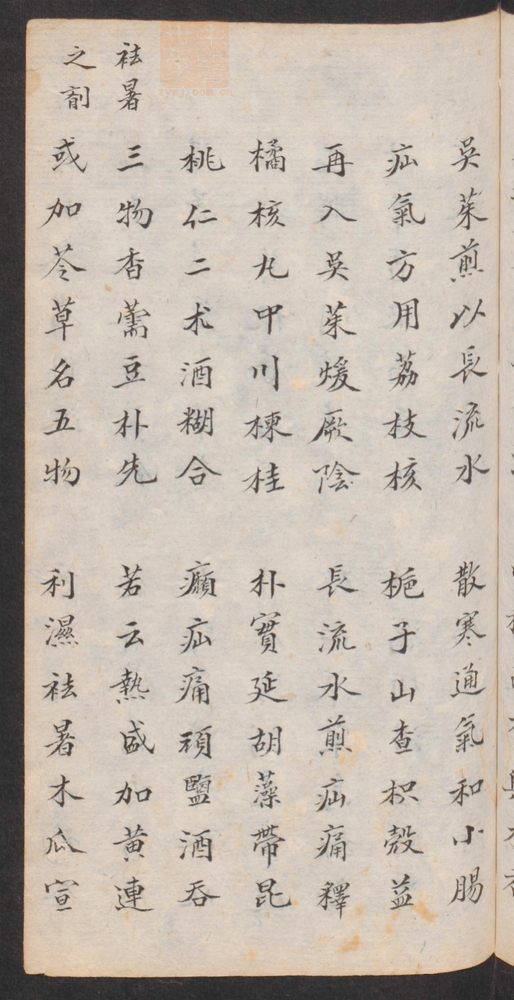 吳茱煎以長流水　散寒通氣和小腸
疝氣方用荔枝核　梔子山查枳殼益
再入吳茱煖厥陰　長流水煎疝痛釋
橘核丸中川楝桂　朴實延胡藻帶昆
桃仁二术酒糊合　癩疝痛頑鹽酒吞
祛暑之劑
三物香薷豆朴先　若云熱盛加黃連
或加苓草名五物　利濕祛暑木瓜宣